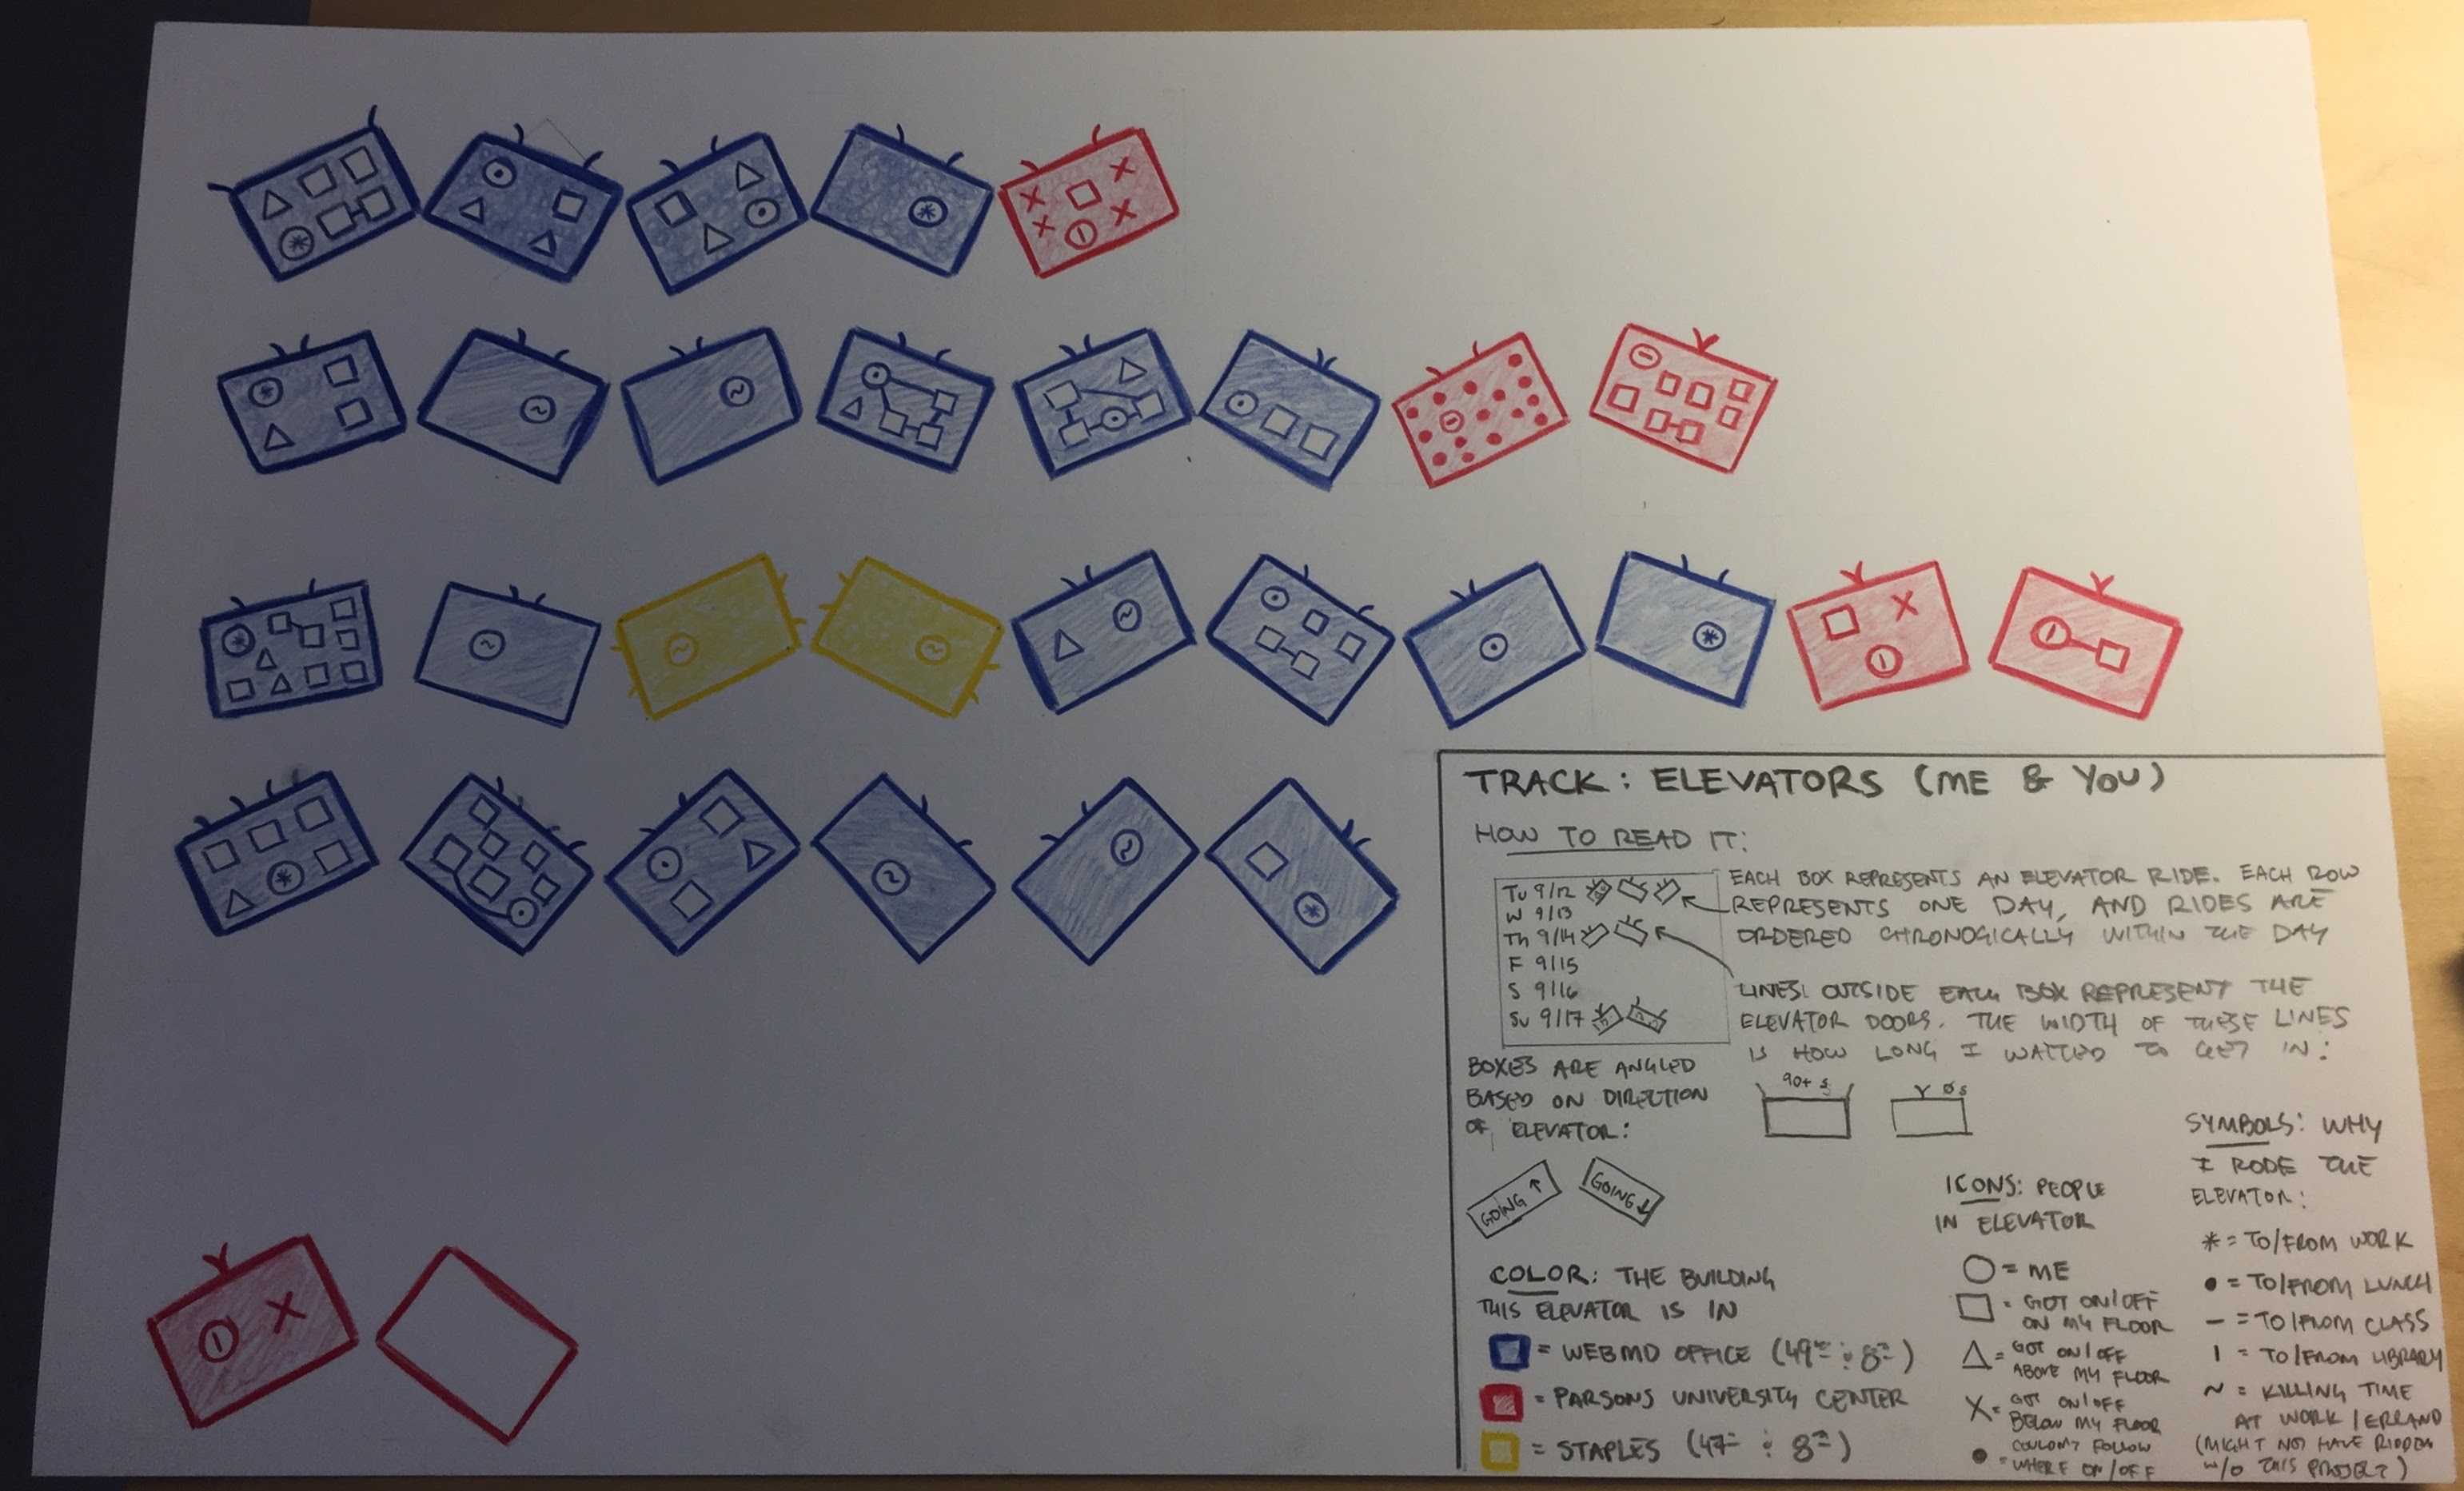 TRACK: ELEVATORS (ME & YOU)
HOW TO READ IT:
Tu 9/12
W 9/13
Th 9/14
F 9/15
S 9/16
Su 9/17
EACH BOX REPRESENTS AN ELEVATOR RIDE. EACH ROW
REPRESENTS ONE DAY, AND RIDES ARE
ORDERED CHRONOGICALLY WITHIN THE DAY
LINES OUTSIDE EACH BOX REPRESENT THE
ELEVATOR DOORS. THE WIDTH OF THESE LINES
IS HOW LONG I WAITED TO GET IN:
90+ s
0s
BOXES ARE ANGLED
BASED ON DIRECTION
OF ELEVATOR:
GOING ↑
GOING ↓
COLOR: THE BUILDING
THIS ELEVATOR IS IN
= WEBMD OFFICE (49TH & 8TH)
= PARSONS UNIVERSITY CENTER
= STAPLES (47TH & 8TH)
ICONS: PEOPLE
IN ELEVATOR
= ME
= GOT ON/OFF
ON MY FLOOR
= GOT ON/OFF
ABOVE MY FLOOR
X = GOT ON/OFF
BELOW MY FLOOR
COULDN'T FOLLOW
● = WHERE ON/OFF
SYMBOLS: WHY
I RODE THE
ELEVATOR:
* = TO/FROM WORK
● = TO/FROM LUNCH
— = TO/FROM CLASS
I = TO/FROM LIBRARY
~ = KILLING TIME
AT WORK / ERRAND
(MIGHT NOT HAVE RIDDEN
W/O THIS PROJECT)